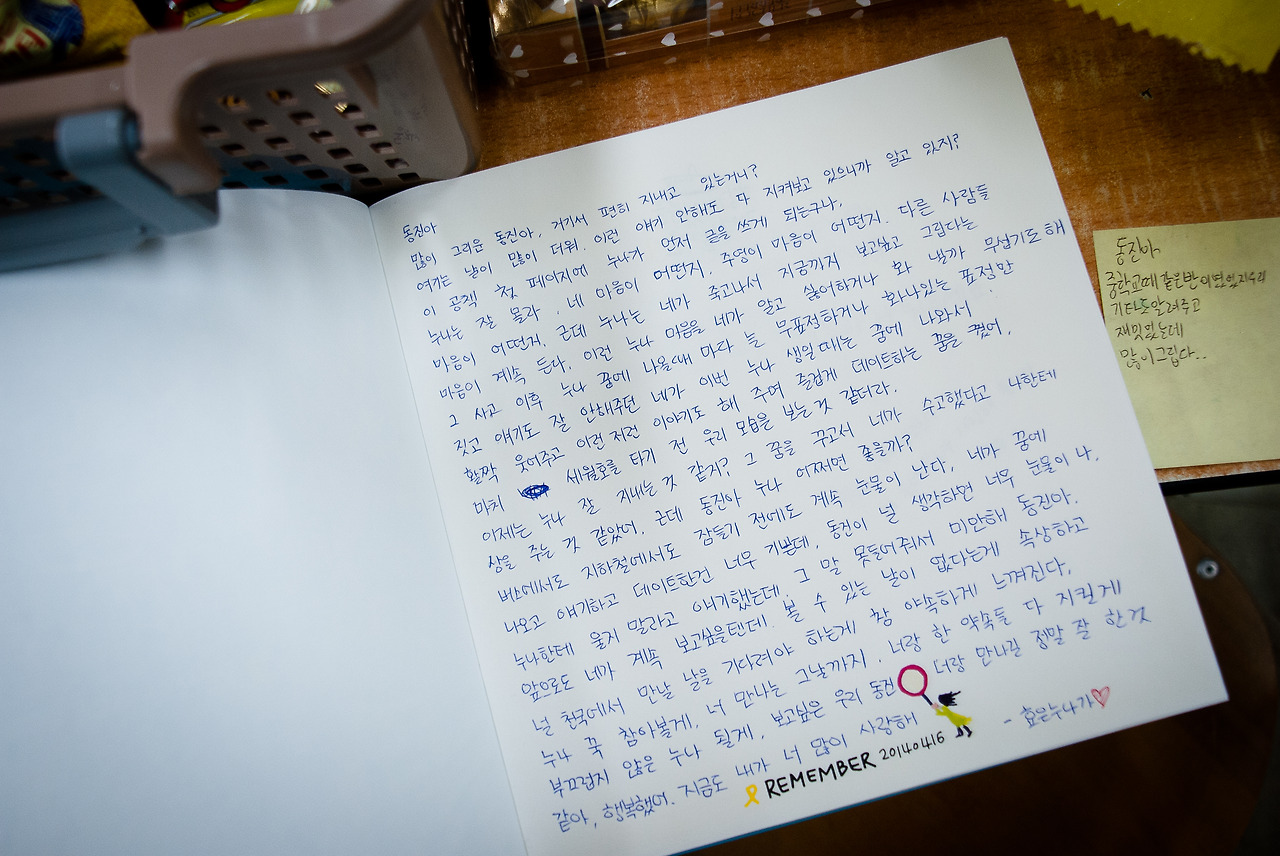 동진아
많이 그리운 동진아, 거기서 편히 지내고 있는거니?
여기는 날이 많이 더워. 이런 얘기 안해도 다 지켜보고 있으니까 알고 있지?
이 공책 첫 페이지에 누나가 먼저 글을 쓰게 되는구나.
누나는 잘 몰라. 네 마음이 어떤지, 주영이 마음이 어떤지. 다른 사람들
마음이 어떤지. 근데 누나는 네가 죽고나서 지금까지 보고싶고 그립다는
마음이 계속 든다. 이런 누나 마음을 네가 알고 싫어하거나 화 낼까 무섭기도 해
그 사고 이후 누나 꿈에 나올때 마다 늘 무표정하거나 화나있는 표정만
짓고 얘기도 잘 안해주던 네가 이번 누나 생일때는 꿈에 나와서
활짝 웃어주고 이런저런 이야기도 해 주며 즐겁게 데이트하는 꿈을 꿨어.
마치 세월호를 타기 전 우리 모습을 보는것 같더라.
이제는 누나 잘 지내는 것 같지? 그 꿈을 꾸고서 네가 수고했다고 나한테
상을 주는 것 같았어. 근데 동진아 누나 어쩌면 좋을까?
버스에서도 지하철에서도 잠들기 전에도 계속 눈물이 난다. 네가 꿈에
나오고 얘기하고 데이트한건 너무 기쁜데, 동진이 널 생각하면 너무 눈물이 나.
누나한테 울지 말라고 얘기했는데. 그 말 못들어줘서 미안해 동진아.
앞으로도 네가 계속 보고싶을텐데. 볼 수 있는 날이 없다는게 속상하고
널 천국에서 만날 날을 기다려야 하는게 참 야속하게 느껴진다.
누나 꾹 참아볼게. 너 만나는 그날까지. 너랑 한 약속들 다 지킬게
부끄럽지 않은 누나 될게. 보고싶은 우리 동진 너랑 만나길 정말 잘 한것
같아, 행복했어. 지금도 내가 너 많이 사랑해
- 효은누나가
REMEMBER 20140416
동진아.
중학교때 같은반이였었지 우리
기타도 알려주고
재밌었는데
많이그립다..